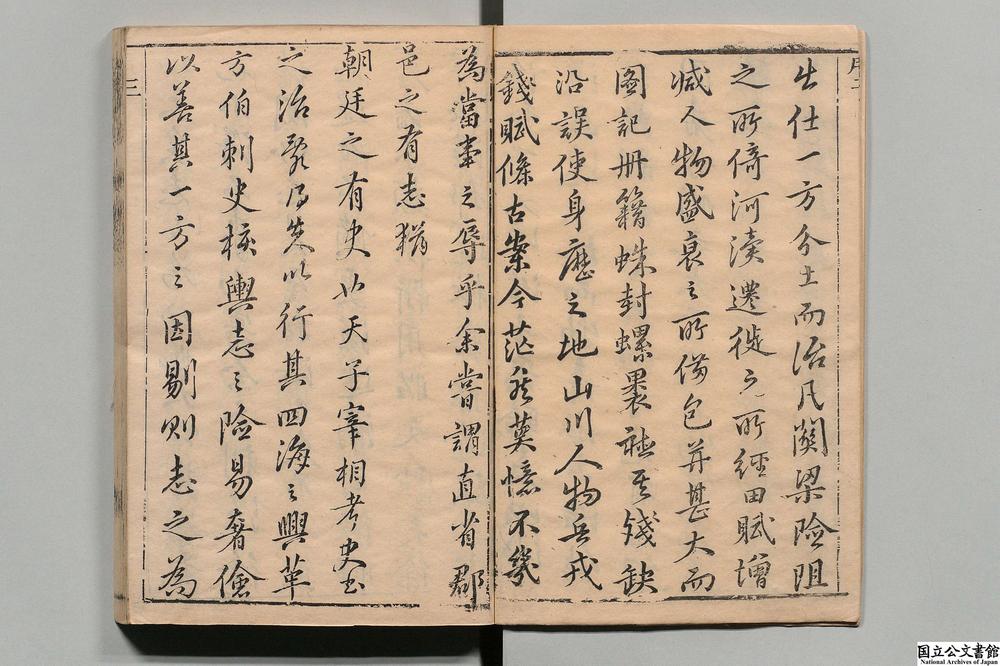 出仕一方分土而治凡關梁險阻
之所倚河瀆遷徙之所經田賦增
减人物盛衰之所備包并甚大而
圖記冊籍蛛封螺裹祗其殘缺
沿誤使身歷之地山川人物兵戎
錢賦條古案今茫然莫憶不幾
為當事之辱乎余嘗謂直省郡
邑之有志猶
朝廷之有史也天子宰相考史書
之治亂得失以行其四海之興革
方伯刺史核輿志之險易奢儉
以善其一方之因剔則志之為
序三
三
国立公文書館
National Archives of Japan